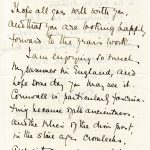 I hope all goes well with you
and that you are looking happily
forward to the years work.
I am enjoying so much
my summer in England, and
hope some day you may see it.
Cornwall is particularly fascina-
ting because of its ancientness.
and the relics of the dim past
in the stone age. Cromlechs,